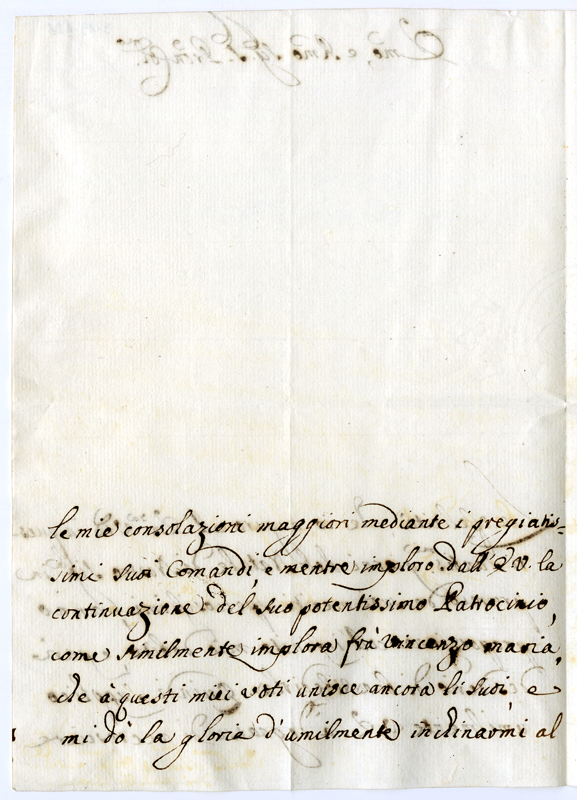 le mie consolazioni maggiori mediante i pregiatis=
simi suoi Comandi, e mentre imploro dall' E V. la
continuazione del suo potentissimo Patrocinio,
come similmente implora frà Vincenzo maria,
che à questi miei voti unisce ancora li suoi, e
mi dò la gloria d'umilmente inchinarmi al